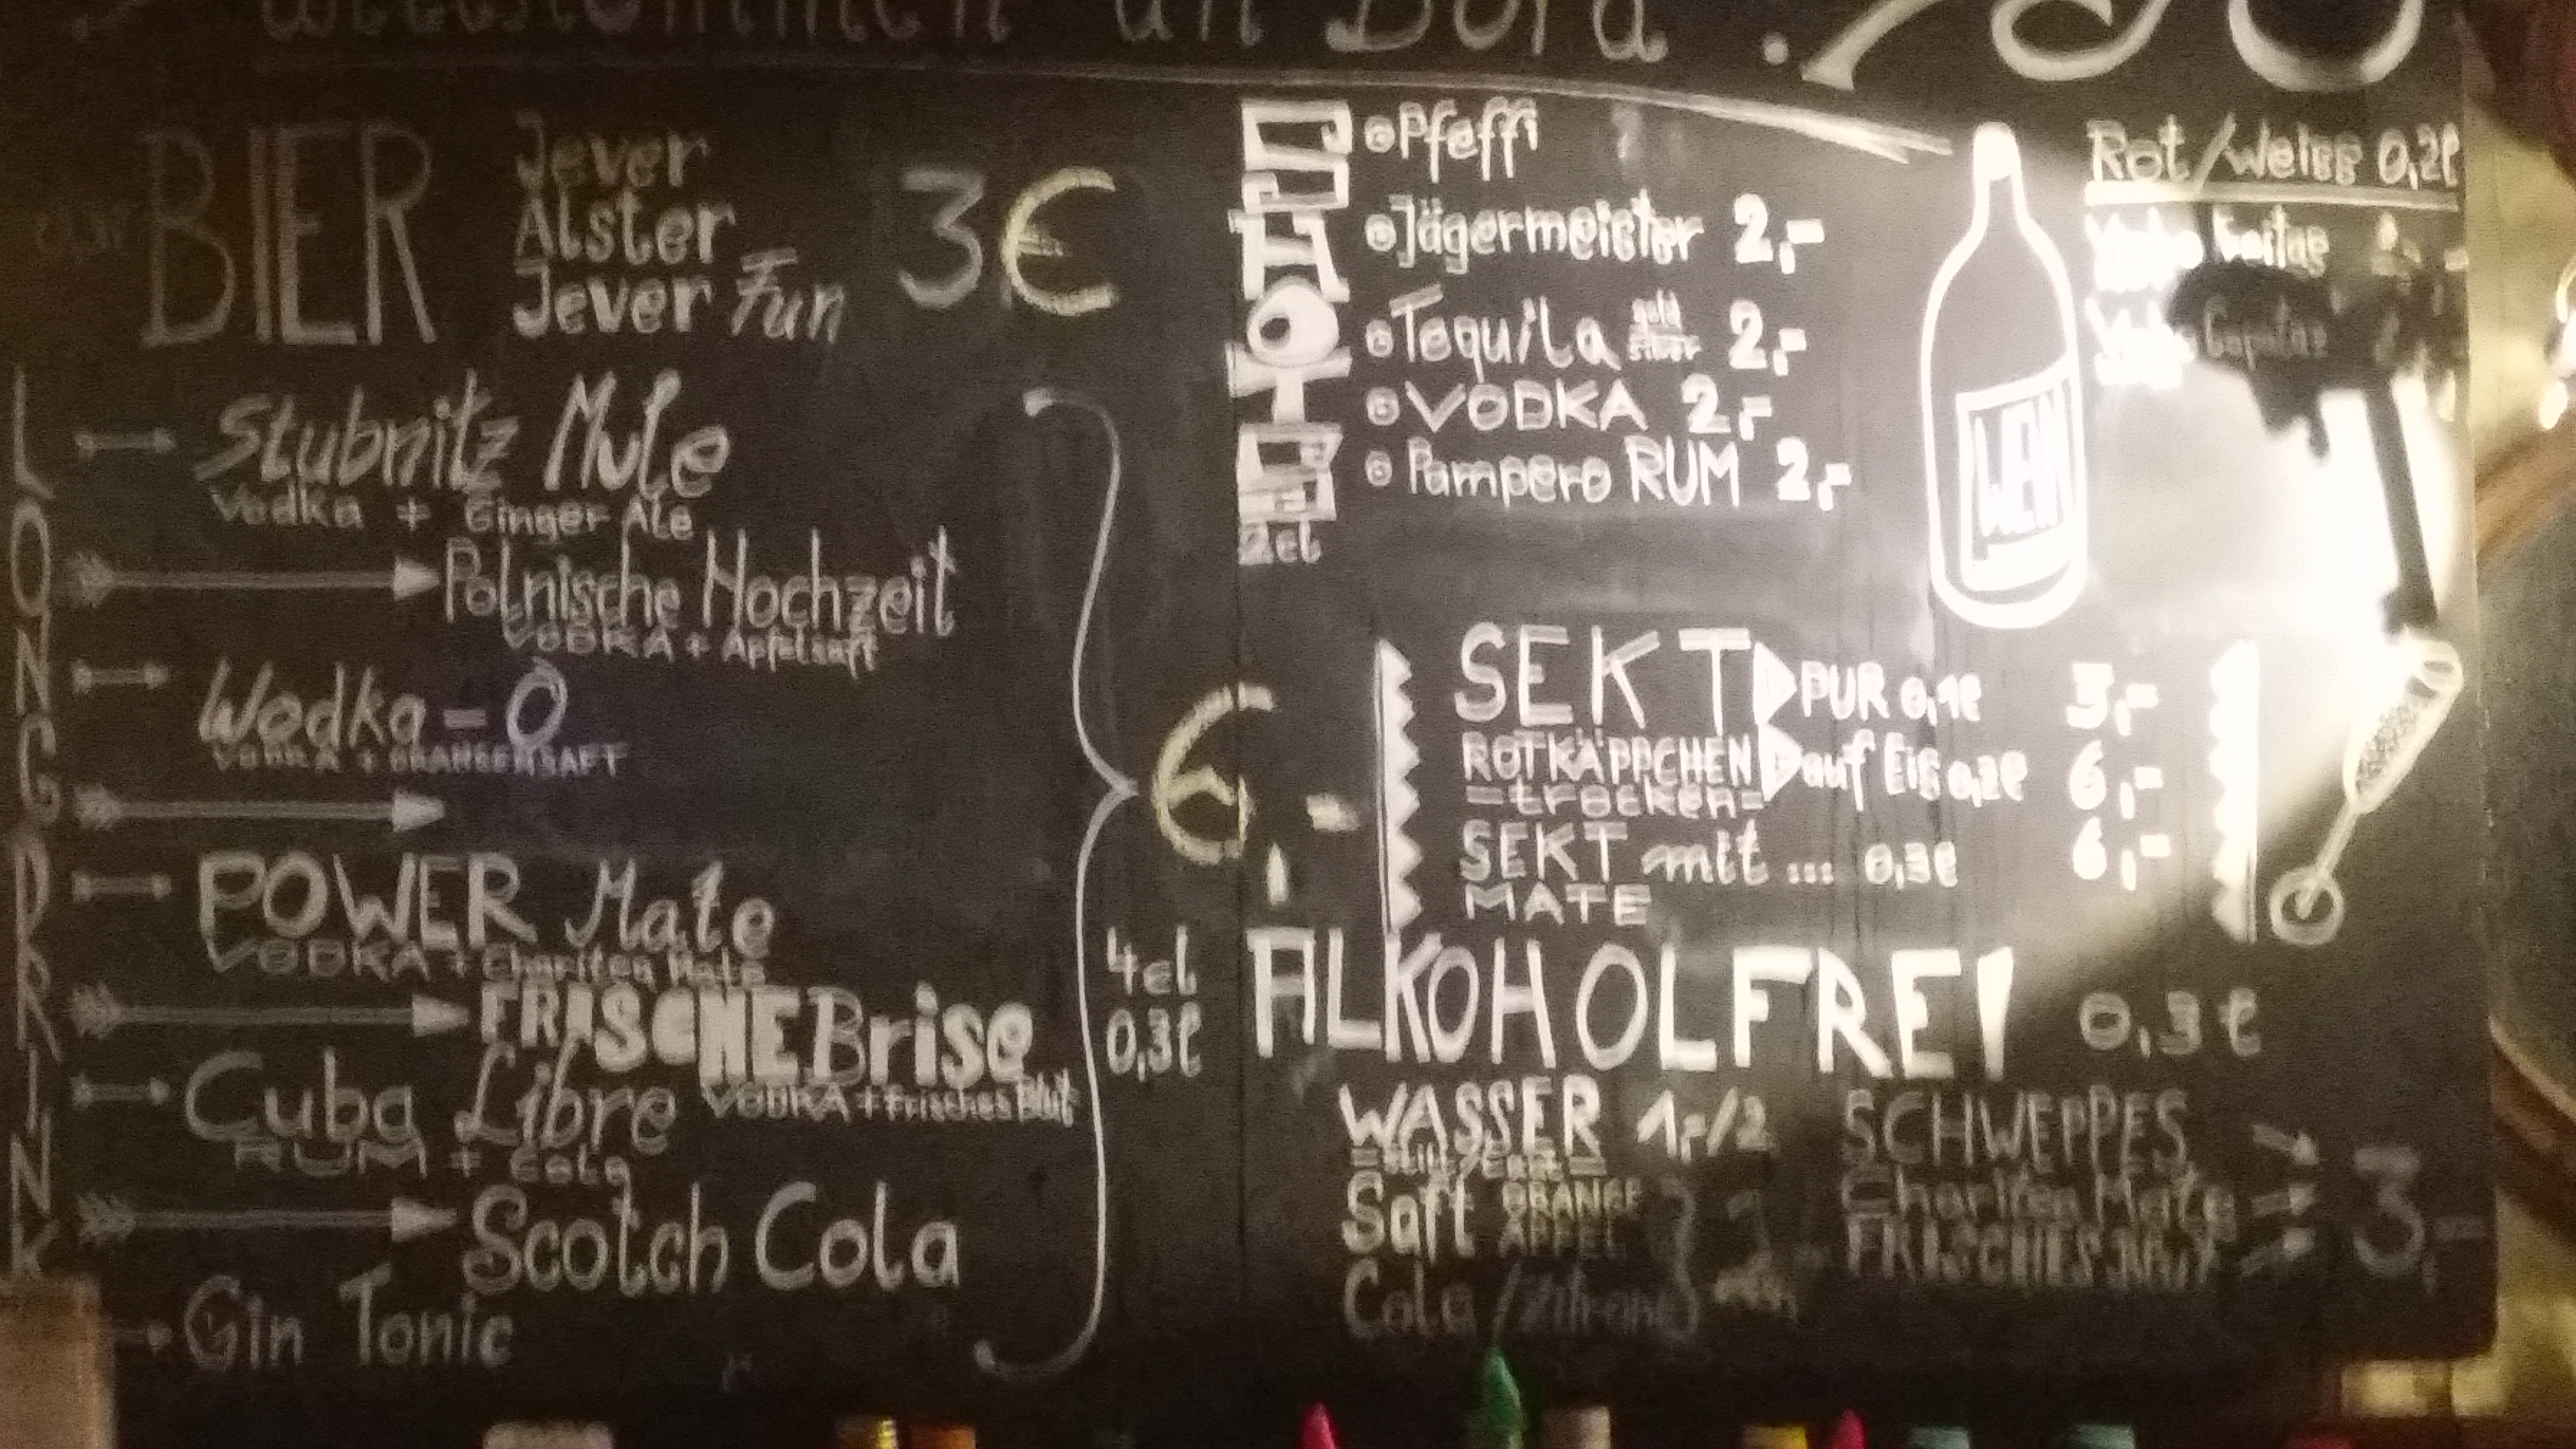 an Bord
BIER
Jever
Alster
Jever Fun
3€
LONGDRINK
Stubnitz Mule
Vodka + Ginger Ale
Polnische Hochzeit
VODKA + Apfelsaft
Wodka-O
VODKA + ORANGENSAFT
POWER Mate
VODKA + Charitea Mate
FRISCHE Brise
VODKA + frisches Blut
Cuba Libre
RUM + Cola
Scotch Cola
Gin Tonic
6,-
4cl
0,3l
Pfeffi
Jägermeister 2,-
Tequila gold silber 2,-
VODKA 2,-
Pampero RUM 2,-
2cl
WEIN
Rot/Weiss 0,2l
SEKT PUR 0,1l 3,-
ROTKÄPPCHEN auf Eis 0,2l 6,-
-trocken-
SEKT mit ... 0,3l 6,-
MATE
ALKOHOLFREI 0,3l
WASSER 1,-/2
Saft ORANGE
APFEL
Cola/Zitrone
SCHWEPPES
Charitea Mate
FRISCHES Blut
3,-